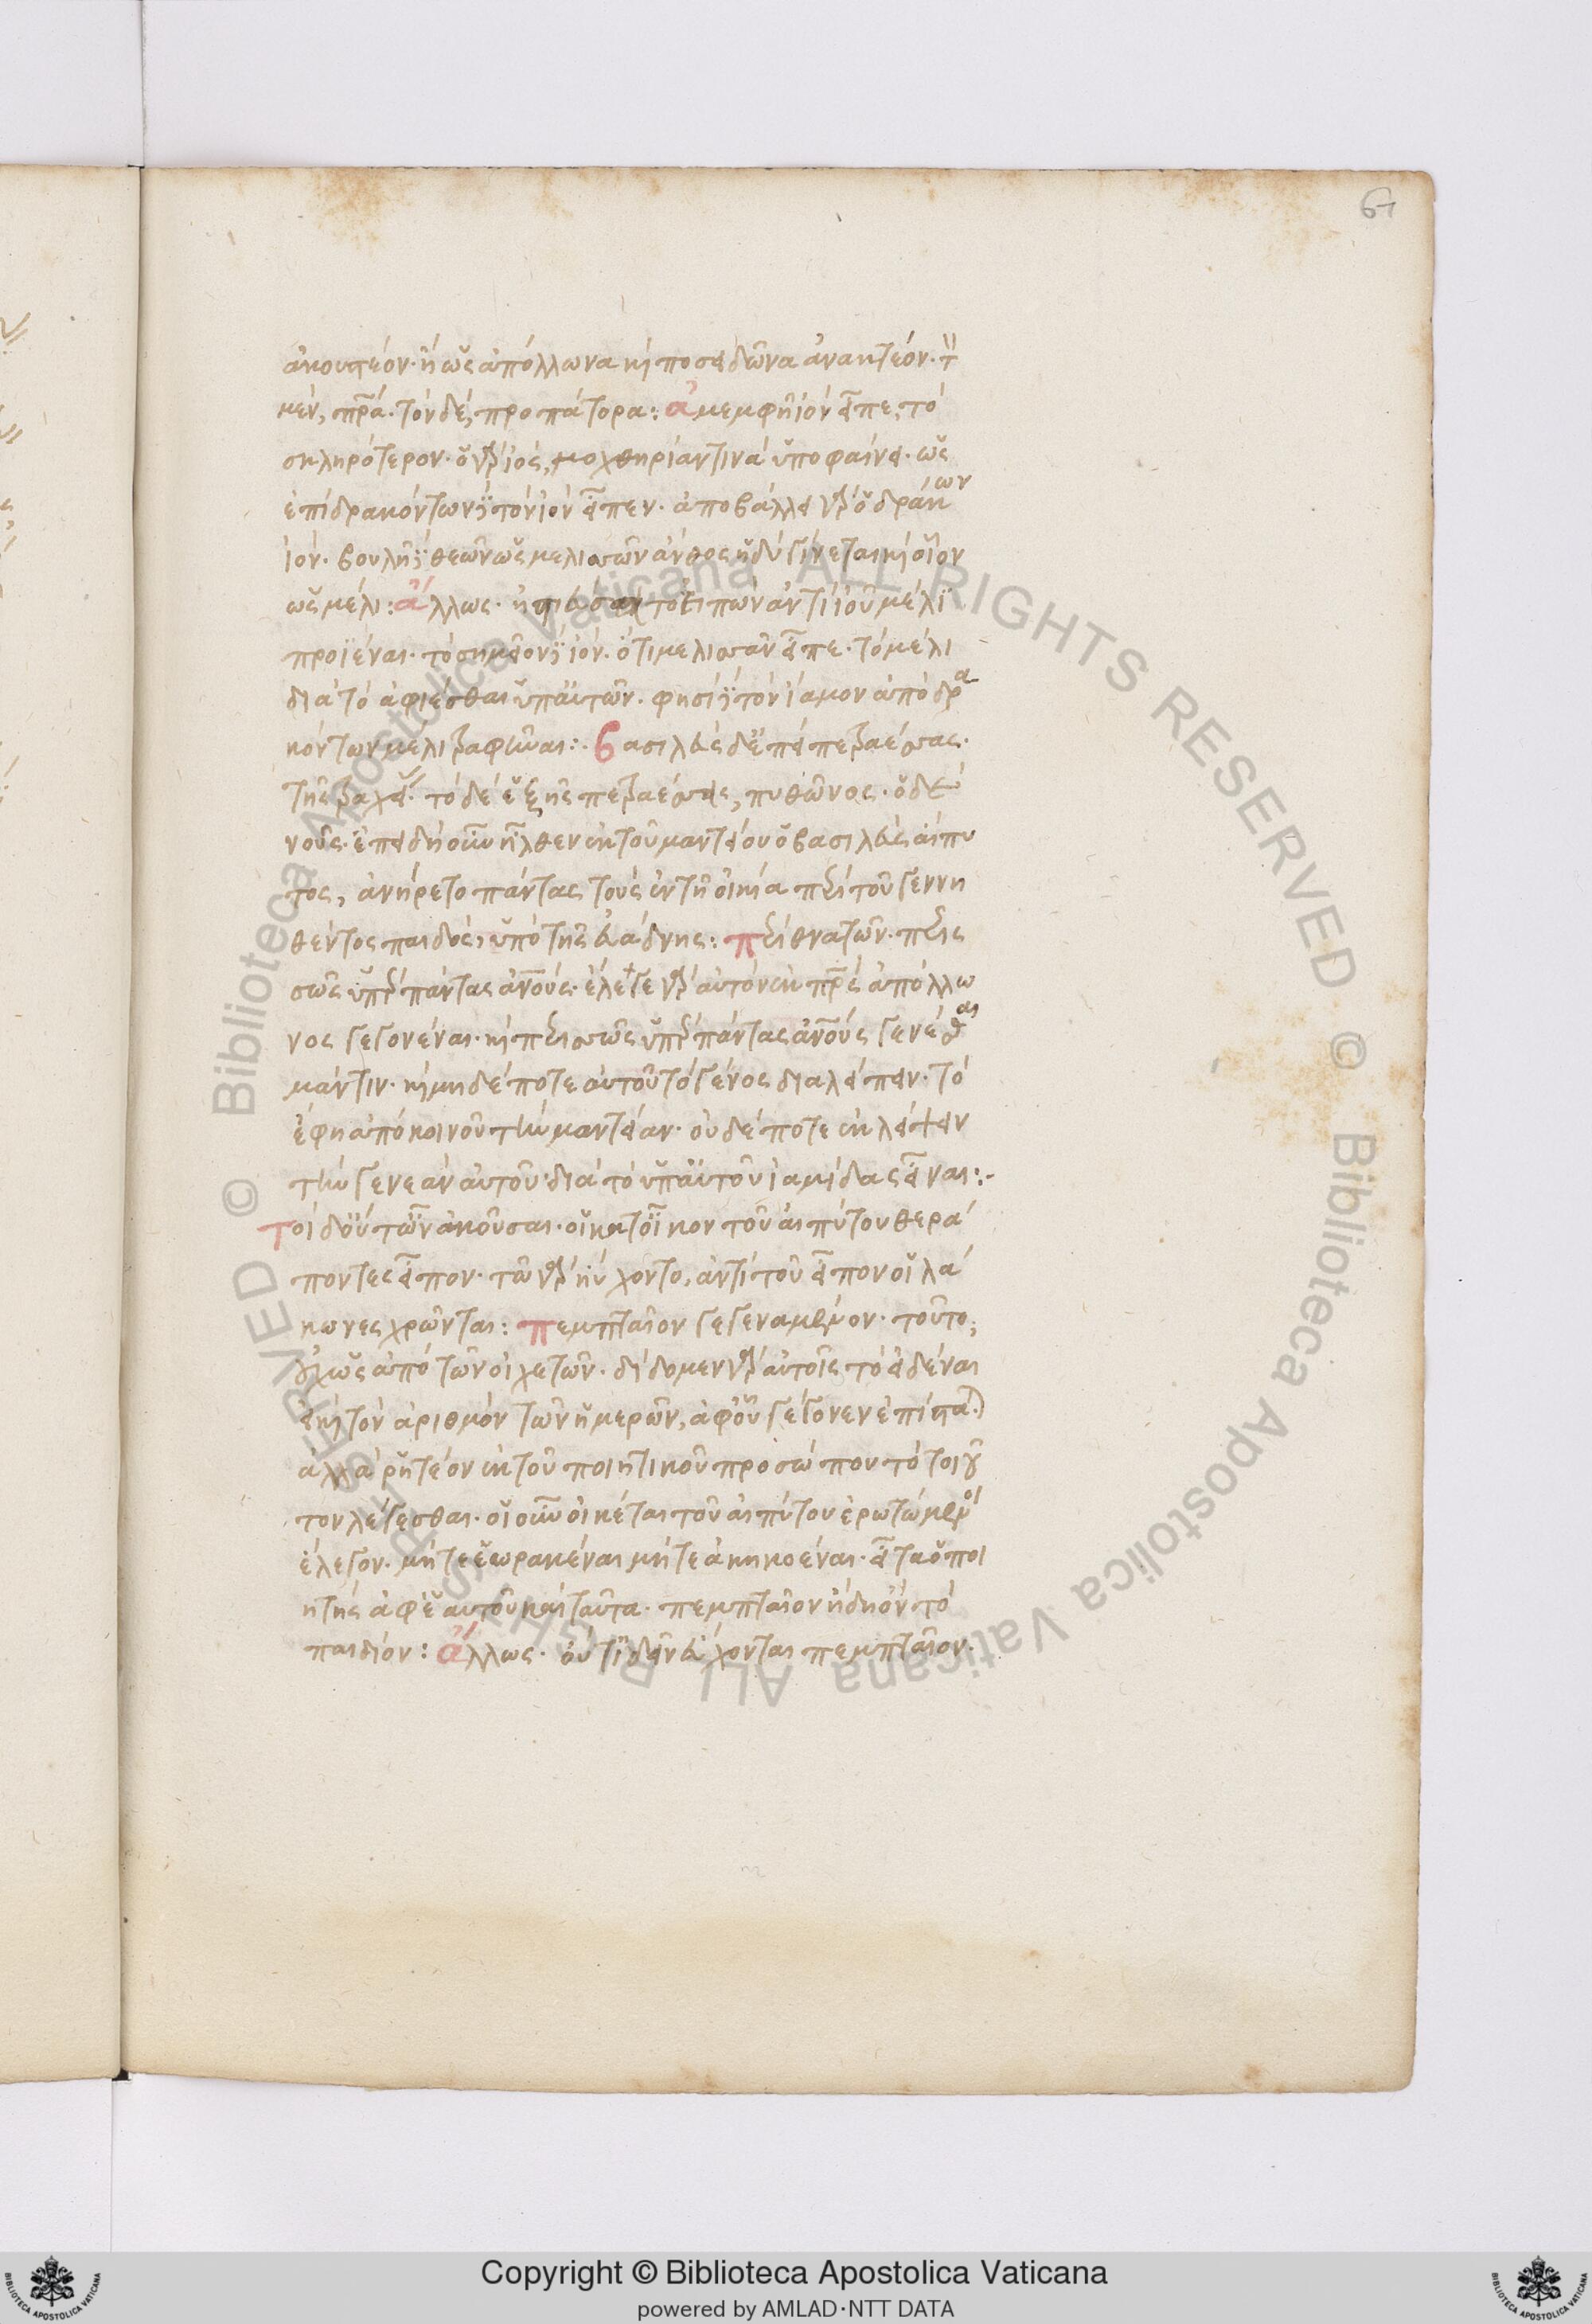 61
ἀκουστέον· ἢ ὡς ἀπόλλωνα κ ποσειδῶνα ἀνακτέον· τ
μὲν, πρα· τὸν δὲ, προπάτορα: ἀμεμφῆ ἰὸν εἶπε, τὸ
σκληρότερον· ὁ γὰρ ἰός, μοχθηρίαν τινὰ ὑποφαίνει· ὡς
ἐπὶ δρακόντων τὸν ἰὸν εἶπεν· ἀποβάλλει γὰρ ὁ δράκων
ἰόν· βουλῆ θεῶν ὡς μελισσῶν ἄνθος ἡδὺ γίνεται κ οἷον
ὡς μέλι: ἄλλως· τὸ εἰπὼν ἀντὶ ἰοῦ μέλι
προϊέναι· τὸ σημεῖον ἰόν· ὅτι μελισσῶν εἶπε· τὸ μέλι
διὰ τὸ ἀφιέσθαι ὑπ' αὐτῶν· φησὶ τὸν ἴαμον ἀπὸ δρα
κόντων μέλι τραφῆναι: βασιλεὺς δ' ἐπεὶ πετραέσσας·
τῆς τραχεί τὸ δὲ ἑξῆς πετραέσσης, πυθῶνος· ὁ δὲ
νοῦς· ἐπειδὴ οὖν ἦλθεν ἐκ τοῦ μαντείου ὁ βασιλεὺς αἴπυ
τος, ἀνήρετο πάντας τοὺς ἐν τῆ οἰκία περὶ τοῦ γεννη
θέντος παιδὸς, ὑπὸ τῆς εὐάδνης: περὶ θνατῶν· περισ
σῶς ὑπὲρ πάντας ανους· ἔλεγε γὰρ αὐτὸν ἐκ πρς ἀπόλλω
νος γεγονέναι· κ περισσῶς ὑπὲρ πάντας ανους γενέσθαι
μάντιν· κ μηδέποτε αὐτοῦ τὸ γένος διαλείπειν· τὸ
ἔφη ἀπὸ κοινοῦ τὴν μαντείαν· οὐδέποτε ἐκλείψειν
τὴν γενεὰν αὐτοῦ· διὰ τὸ ὑπ' αὐτοῦ ἰαμίδας εἶναι:
τοὶ δ' οὔτ' ὦν ἀκοῦσαι· οἱ κατ' οἶκον τοῦ αἰπύτου θερά
ποντες εἶπον· τῶ γὰρ ηὔχοντο, ἀντὶ τοῦ εἶπον οἱ λά
κωνες χρῶνται: πεμπταῖον γεγεναμένον· τοῦτο,
οὐχ ὡς ἀπὸ τῶν οἰκετῶν· δίδομεν γὰρ αὐτοῖς τὸ εἰδέναι
τὸν ἀριθμὸν τῶν ἡμερῶν, ἀφ' οὗ γέγονεν
ἀλλὰ ῥητέον ἐκ τοῦ ποιητικοῦ προσώπου τὸ τοιοῦ
τον λέγεσθαι· οἱ οὖν οἰκέται τοῦ αἰπύτου ἐρωτώμενοι
ἔλεγον· μήτε ἑωρακέναι μήτε ἀκηκοέναι· εἶτα ὁ ποι
ητὴς ἀφ' ἑαυτοῦ καὶ ταῦτα· πεμπταῖον ἤδη ὂν τὸ
παιδίον: ἄλλως· οὔτ' ἰδεῖν εὔχονται πεμπταῖον·
© Biblioteca Apostolica Vaticana ALL RIGHTS RESERVED © Biblioteca Apostolica Vaticana ALL RIGHTS RESERVED
Copyright © Biblioteca Apostolica Vaticana
powered by AMLAD·NTT DATA
BIBLIOTECA APOSTOLICA VATICANA
BIBLIOTECA APOSTOLICA VATICANA